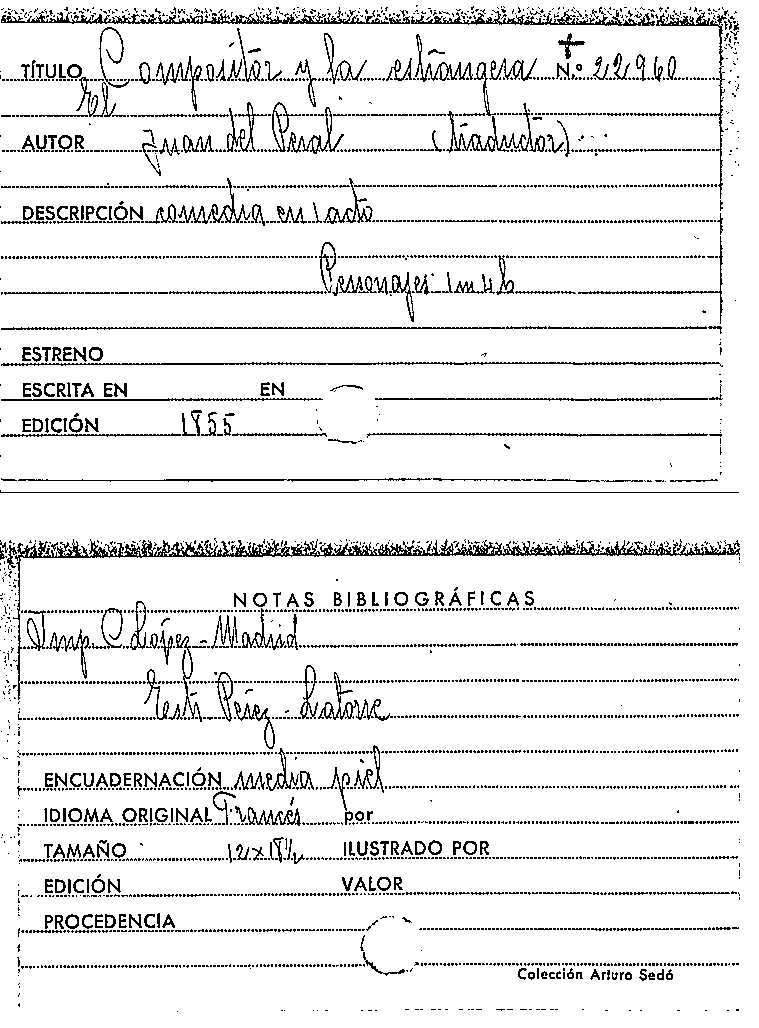 TÍTULO Compositor y la estrangera N.º 22960
El
AUTOR Juan del Peral (traductor)...
DESCRIPCIÓN comedia en 1 acto
Personajes 1m 4h
ESTRENO
ESCRITA EN EN
EDICIÓN 1855
NOTAS BIBLIOGRÁFICAS
Imp. C. López - Madrid
Pérez - Latorre
ENCUADERNACIÓN media piel
IDIOMA ORIGINAL Francés por
TAMAÑO 12 x 18½ ILUSTRADO POR
EDICIÓN VALOR
PROCEDENCIA
Colección Arturo Sedó